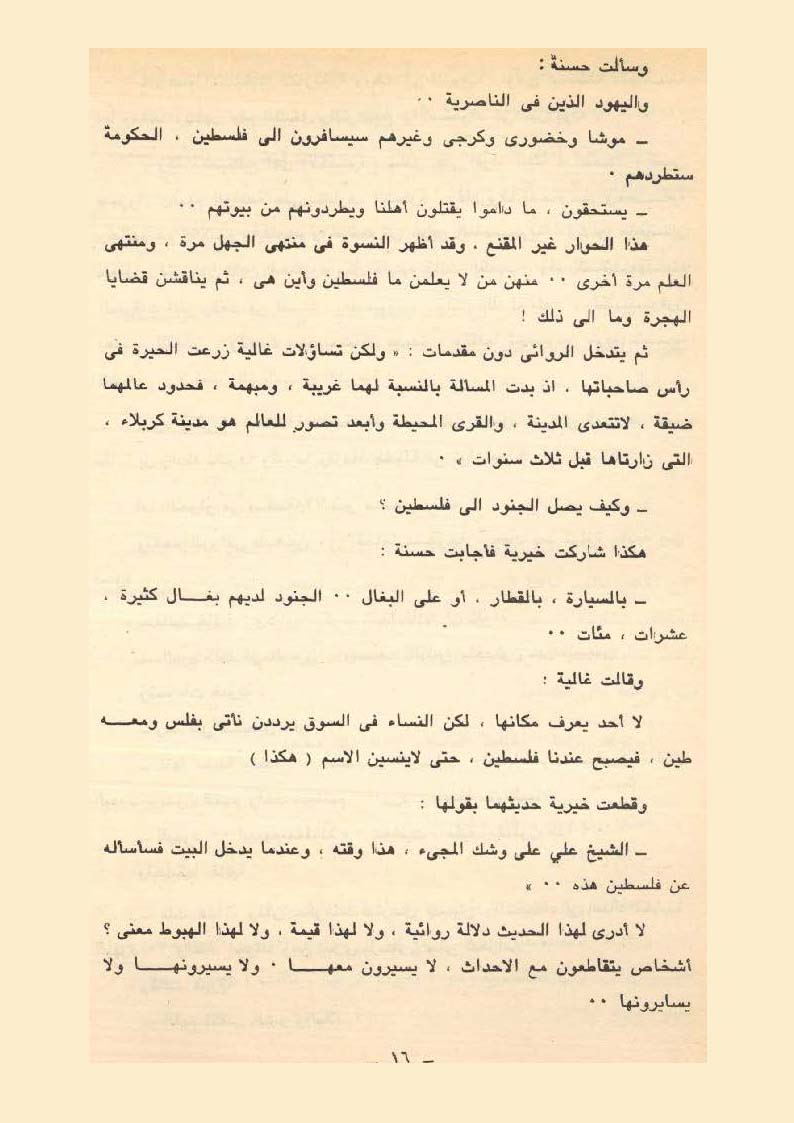 وسألت حسنة :
واليهود الذين فى الناصرية ٠٠
ــ موشا وخضورى وكرجى وغيرهم سيسافرون الى فلسطين ، الحكومة
ستطردهم ٠
ــ يستحقون ، ما داموا يقتلون أهلنا ويطردونهم من بيوتهم ٠٠
هذا الحوار غير المقنع ، وقد أظهر النسوة فى منتهى الجهل مرة ، ومنتهى
العلم مرة أخرى ٠٠ منهن من لا يعلمن ما فلسطين وأين هى ، ثم يناقشن قضايا
الهجرة وما الى ذلك !
ثم يتدخل الروائى دون مقدمات : « ولكن تساؤلات غالية زرعت الحيرة فى
رأس صاحباتها ، اذ بدت المسألة بالنسبة لهما غريبة ، ومبهمة ، فحدود عالمهما
ضيقة ، لاتتعدى المدينة ، والقرى المحيطة وأبعد تصور للعالم هو مدينة كربلاء ،
التى زارتاها قبل ثلاث سنوات » ٠
ــ وكيف يصل الجنود الى فلسطين ؟
هكذا شاركت خيرية فأجابت حسنة :
ــ بالسيارة ، بالقطار ، أو على البغال ٠٠ الجنود لديهم بغـــال كثيرة ،
عشرات ، مئات ٠٠
وقالت غالية :
لا أحد يعرف مكانها ، لكن النساء فى السوق يرددن نأتى بفلس ومعـــه
طين ، فيصبح عندنا فلسطين ، حتى لاينسين الاسم ( هكذا )
وقطعت خيرية حديثهما بقولها :
ــ الشيخ علي على وشك المجىء ، هذا وقته ، وعندما يدخل البيت فسأسأله
عن فلسطين هذه ٠٠ »
لا أدرى لهذا الحديث دلالة روائية ، ولا لهذا قيمة ، ولا لهذا الهبوط معنى ؟
أشخاص يتقاطعون مع الاحداث ، لا يسيرون معهـــا ٠ ولا يسيرونهـــا ولا
يسايرونها ٠٠
ــ ١٦ ــ